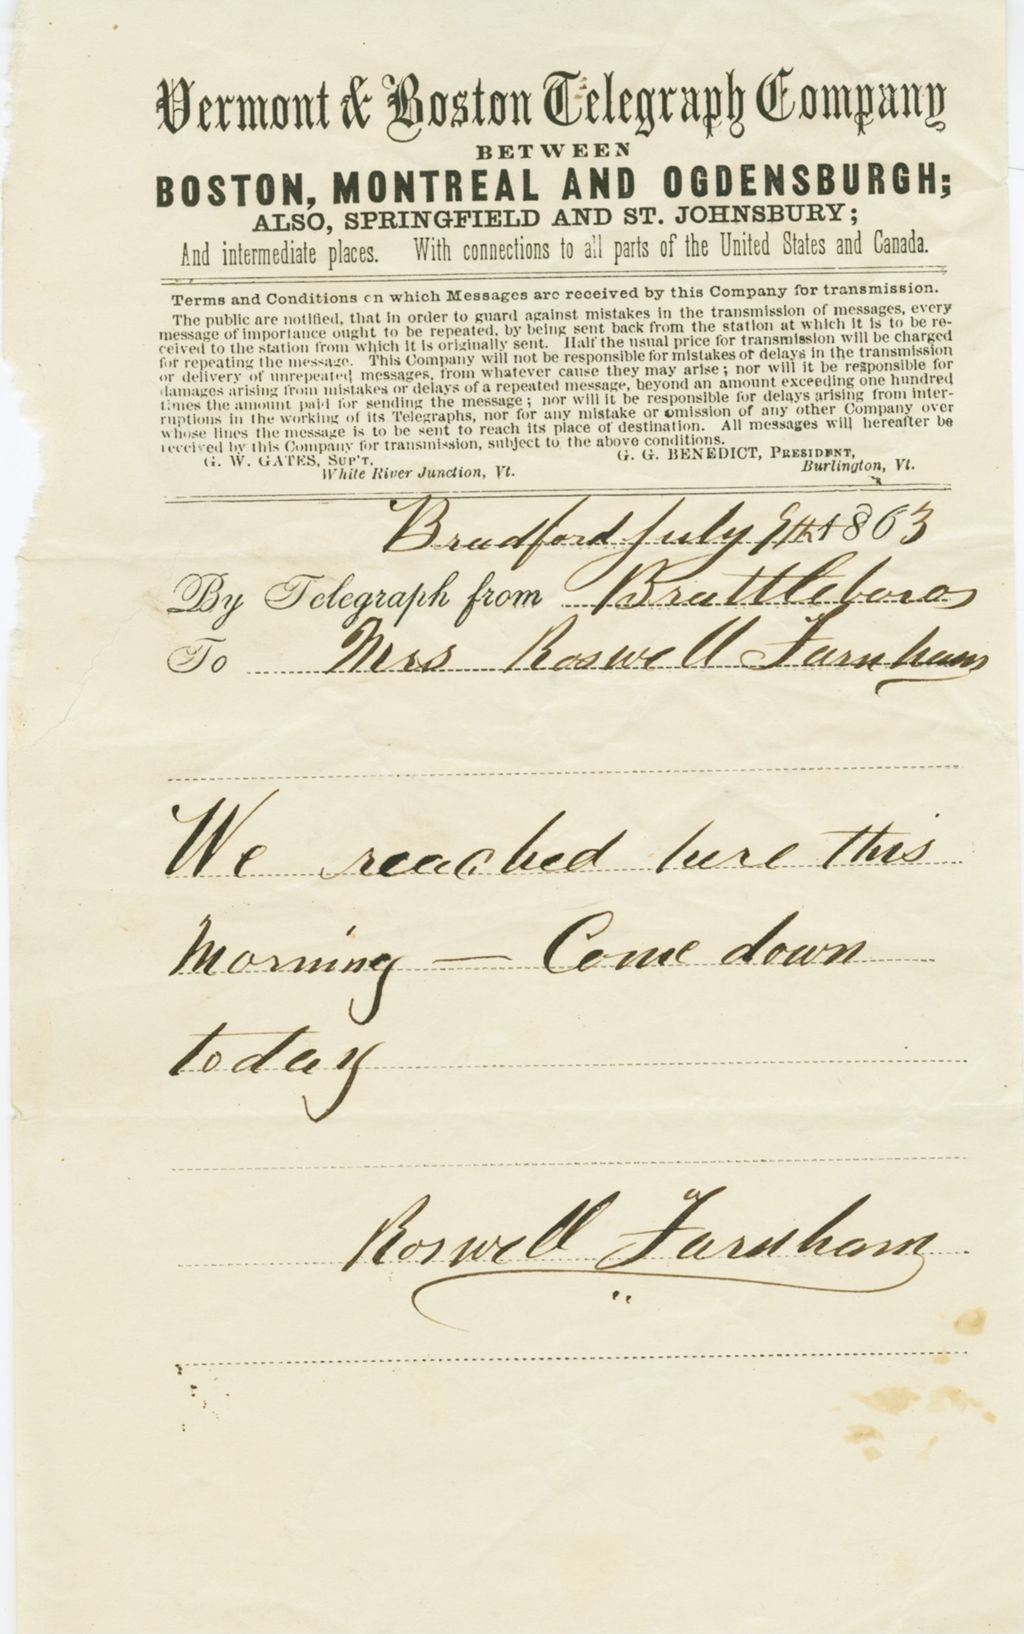 Vermont & Boston Telegraph Company
BETWEEN
BOSTON, MONTREAL AND OGDENSBURGH;
ALSO, SPRINGFIELD AND ST. JOHNSBURY;
And intermediate places. With connections to all parts of the United States and Canada.
Terms and Conditions on which Messages are received by this Company for transmission.
The public are notified, that in order to guard against mistakes in the transmission of messages, every
message of importance ought to be repeated, by being sent back from the station at which it is to be re-
ceived to the station from which it is originally sent. Half the usual price for transmission will be charged
for repeating the message. This Company will not be responsible for mistakes or delays in the transmission
or delivery of unrepeated messages, from whatever cause they may arise; nor will it be responsible for
damages arising from mistakes or delays of a repeated message, beyond an amount exceeding one hundred
times the amount paid for sending the message; nor will it be responsible for delays arising from inter-
ruptions in the working of its Telegraphs, nor for any mistake or omission of any other Company over
whose lines the message is to be sent to reach its place of destination. All messages will hereafter be
received by this Company for transmission, subject to the above conditions.
G. W. GATES, SUP'T, G. G. BENEDICT, PRESIDENT,
White River Junction, Vt. Burlington, Vt.
Bradford July 9th 1863
By Telegraph from Brattleboro
To Mrs Roswell Farnham
We reached here this
Morning — Come down
today
Roswell Farnham